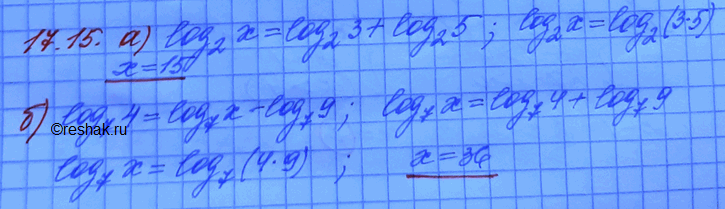 17.15. а) log₂ x = log₂ 3 + log₂ 5 ; log₂ x = log₂ (3·5)
x = 15
б) log₇ 4 = log₇ x - log₇ 9 ; log₇ x = log₇ 4 + log₇ 9
©reshak.ru
log₇ x = log₇ (4·9) ; x = 36